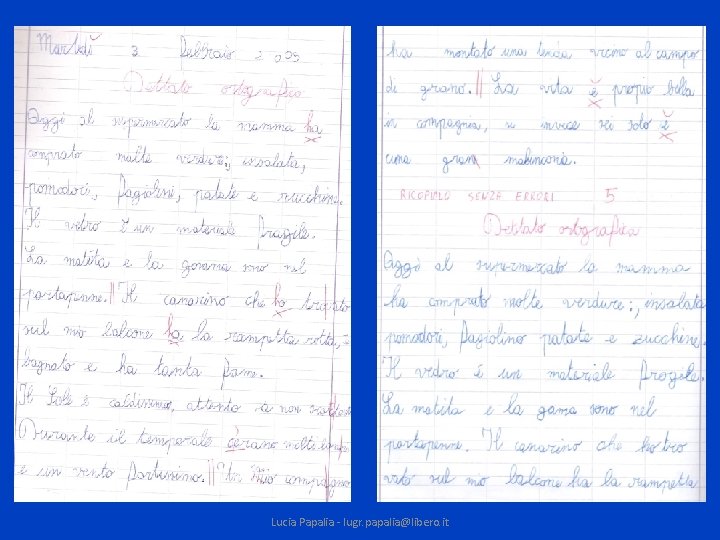 Martedì 3 Febbraio 2009
Dettato ortografico
Oggi al supermercato la mamma ha
comprato molte verdure:, insalata,
pomodori, fagiolini, patate e zucchine.
Il vetro è un materiale fragile.
La matita e la gomma sono nel
portapenne. Il canarino che ho trovato
sul mio balcone ha la rampetta rotta, è
bagnato e ha tanta fame.
Il Sole è caldissimo, attento a non
Durante il temporale cerano molte lampi
e un vento fortissimo. Un mio compagno
ha montato una tenda vicino al campo
di grano. La vita è propio bella
in compagnia, se invece sei solo è
una gran malinconia.
RICOPIALO SENZA ERRORI 5
Dettato ortografico
Oggi al supermercato la mamma
ha comprato molte verdure:, insalata
pomodori, fagiolino patate e zucchine.
Il vedro è un materiale fragile.
La matita e la gama sono nel
portapenne. Il canarino che ho tro
vato sul mio balcone ha la rampetta
Lucia Papalia - lugr.papalia@libero.it